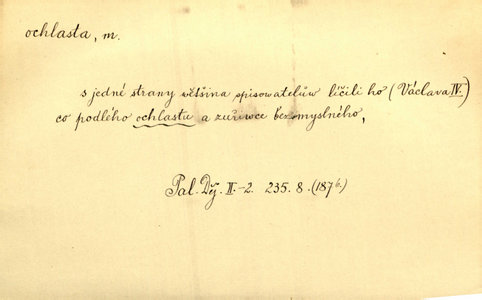 ochlasta, m.
s jedné strany wětšina spisowatelůw líčili ho (Václava IV.)
co podlého ochlastu a zuřiwce bezmyslného,
Pal. Děj. II.-2. 235. 8. (1876.)